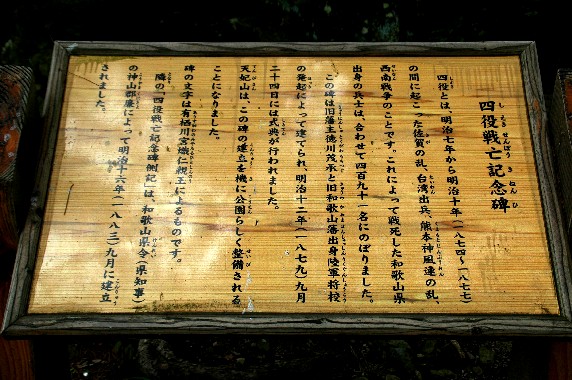 四役戦亡記念碑
四役とは、明治七年から明治十年（一八七四～一八七七）
の間に起こった佐賀の乱、台湾出兵、熊本神風連の乱、
西南戦争のことです。これによって戦死した和歌山県
出身の兵士は、合わせて四百九十一名にのぼりました。
この碑は旧藩主徳川茂承と旧和歌山藩出身陸軍将校
の発起によって建てられ、明治十二年（一八七九）九月
二十四日には式典が行われました。
天妃山は、この碑の建立を機に公園らしく整備される
ことになりました。
碑の文字は有栖川宮熾仁親王によるものです。
隣の「四役戦亡記念碑側記」は、和歌山県令（県知事）
の神山郡廉によって明治十六年（一八八三）九月に建立
されました。